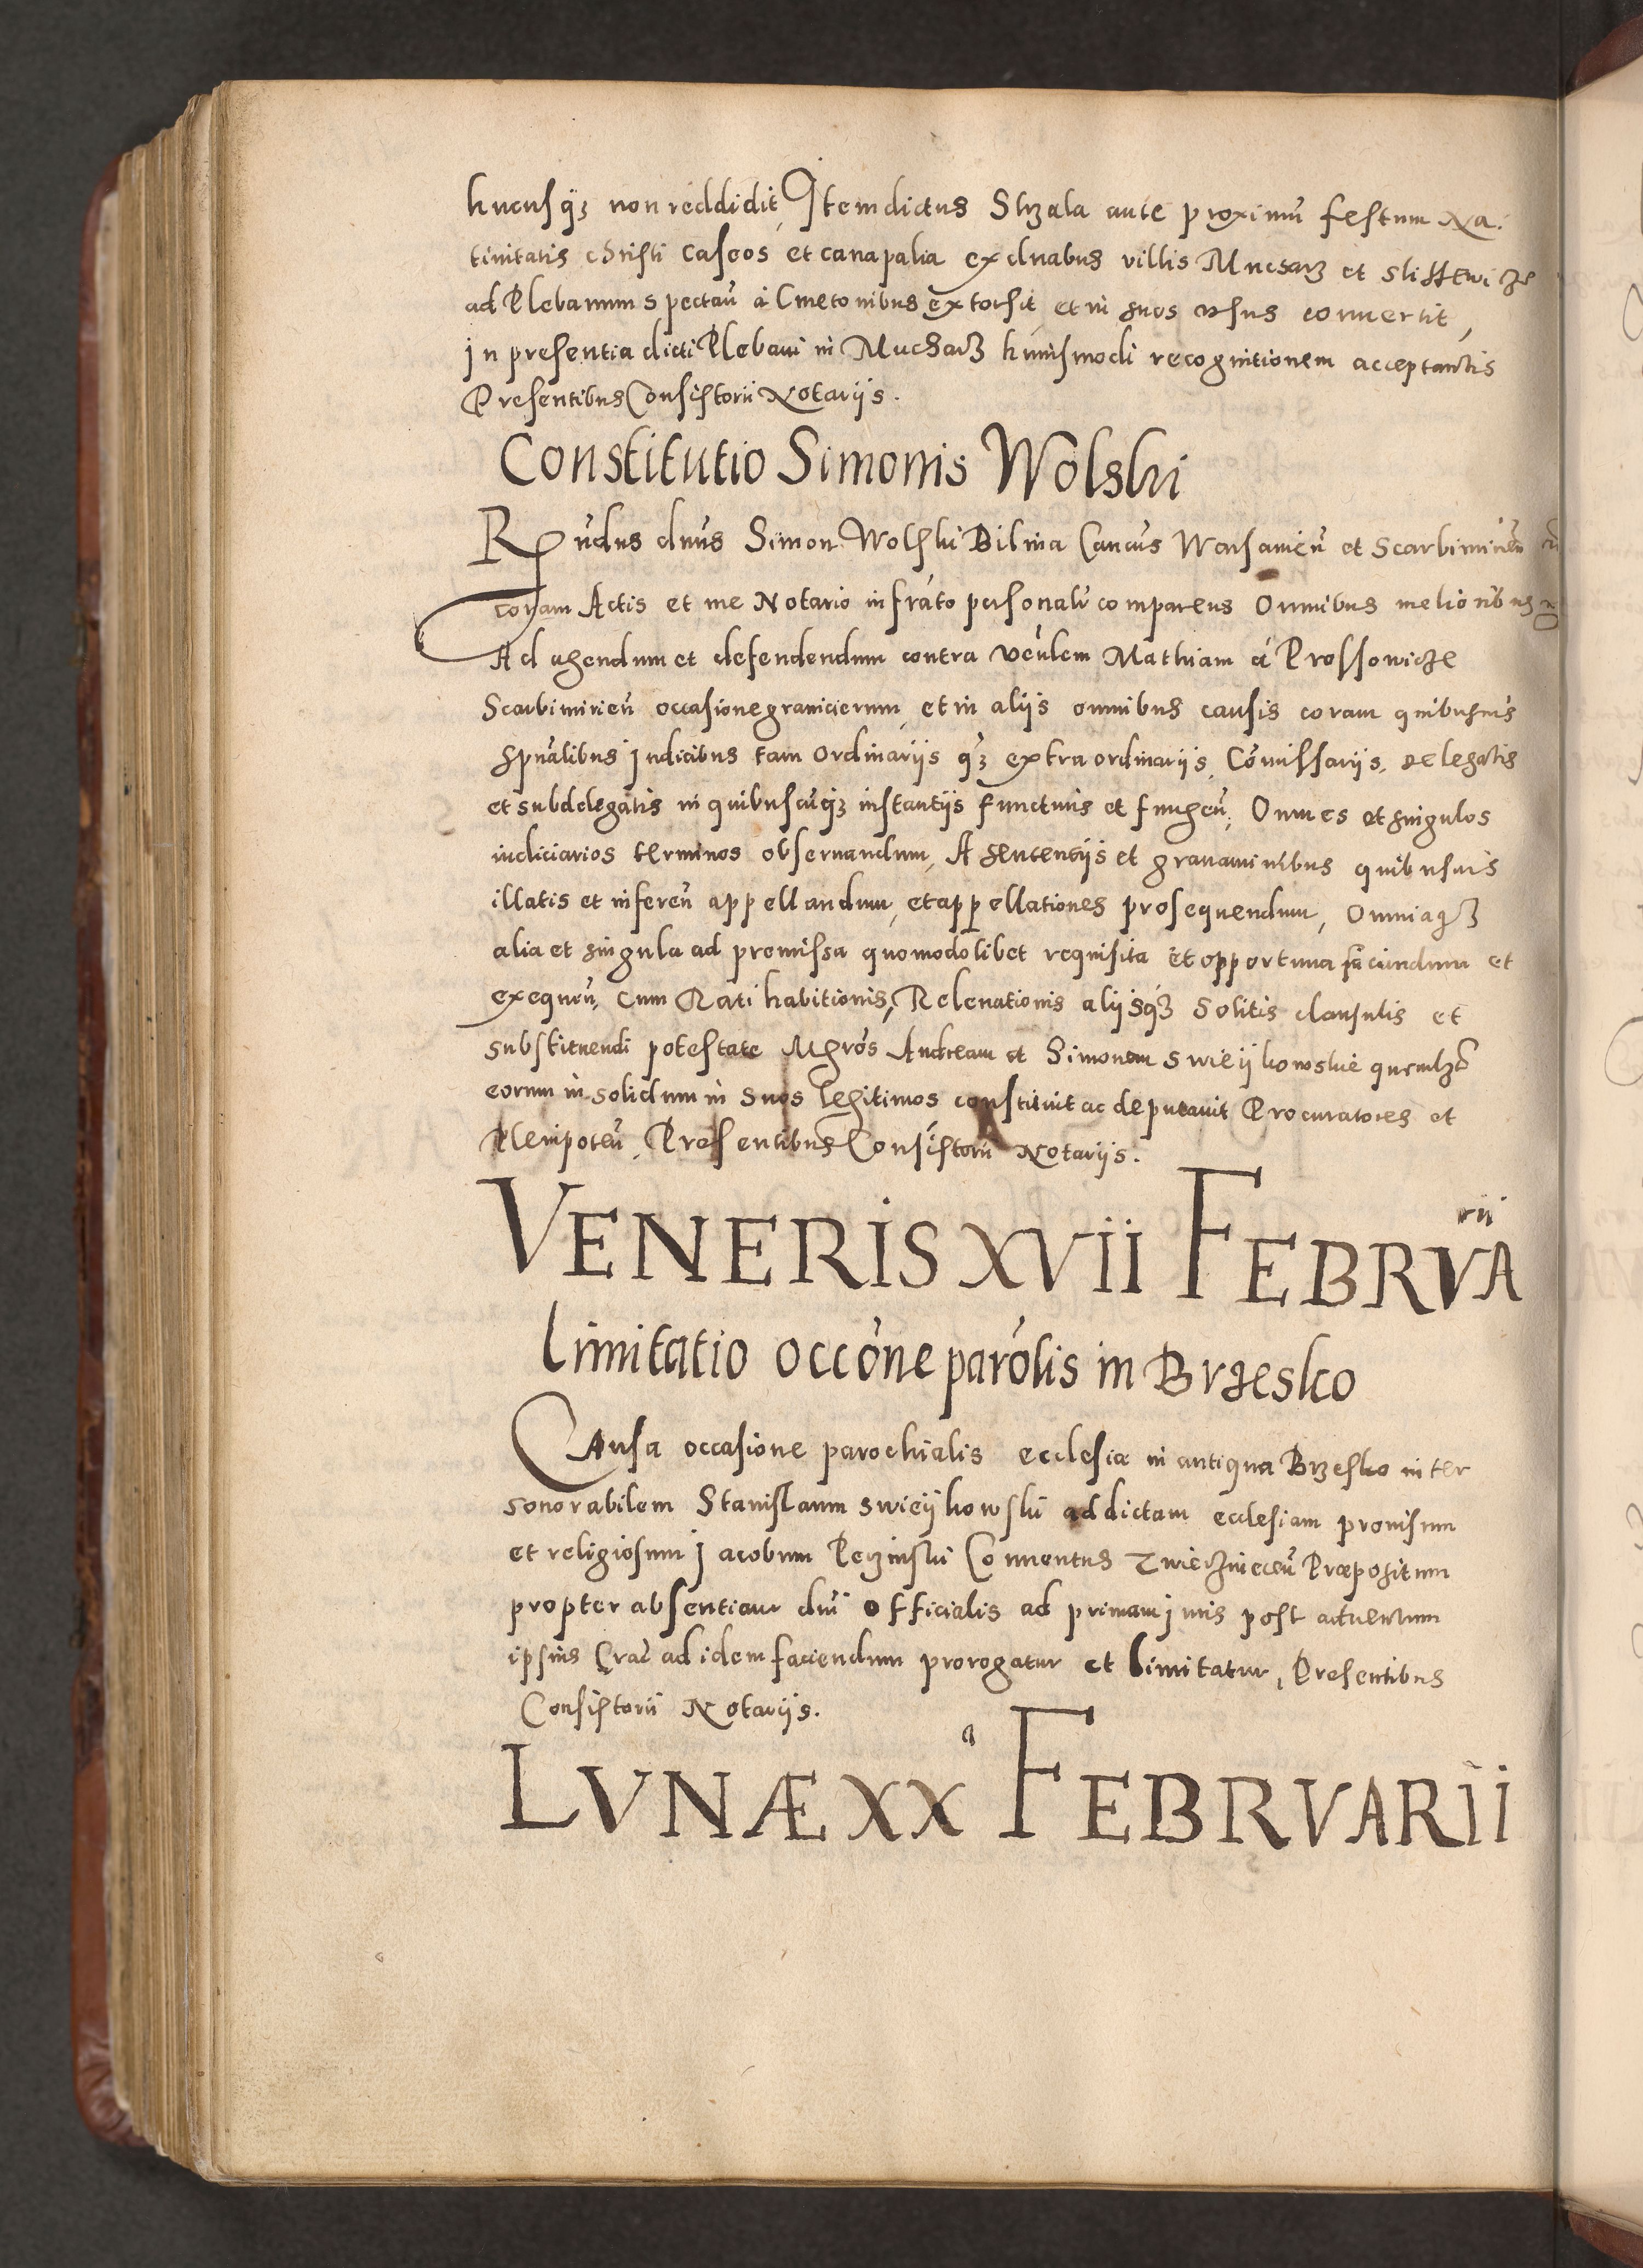 hucusq3 non reddidit, Item dictus Strzala ante proximũ festum Na-
tiuitatis christi caseos et canapalia ex duabus villis Mucharz et
ad Plebanum spectañ à Cmetonibus extorsit et in suos usus conuertit,
in presentia dicti Plebani in Mucharz huiusmodi recognitionem acceptantis
Presentibus Consistorii Notariis.
Constitutio Simonis Wolski
Rñdus dnũs Simon Wolski Bilina Cancus Warsauieñ et Scarbimirieñ
coram Actis et me Notario infrato personalr compareus Omnibus melioribus
Ad agendum et defendendum contra veñlem Mathiam à Prossowicze
Scarbimirieñ occasione granicierum, et in aliis omnibus causis coram quibusuis
spũalibus iudicibus tam ordinariis q3 extraordinariis, Cõmissariis, delegatis
et subdelegatis in quibuscũq3 instantiis functuris et fungeñ, Omnes et singulos
iudiciarios terminos obseruandum, A sententiis et grauaminibus quibusuis
illatis et infereñ appellandum, et appellationes prosequendum, Omniaq3
alia et singula ad premissa quomodolibet requisita et opportuna faciundum et
exequeñ, cum Rati habitionis, Releuationis aliisq3 solitis clausulis et
substituendi potestate Mgros Andream et Simonem Swieykowskie quemlz
eorum in solidum in suos legitimos constituit ac deputauit Procuratores et
Plenipoteñ, Presentibus Consistorii Notariis.
VENERIS XVII FEBRVA rii
Limitatio occone parolis in Brzesko
Causa occasione parochialis ecclesiæ in antiqua Brzesko inter
honorabilem Stanislaum Swieykowski ad dictam ecclesiam prouisum
et religiosum Jacobum Conuentus Zwierzinieceñ Præpositum
propter absentiam dni officialis ad primam iuris post aduentum
ipsius Crac ad idem faciendum prorogatur et limitatur, Presentibus
Consistorii Notariis.
LVNÆ XX a FEBRVARII